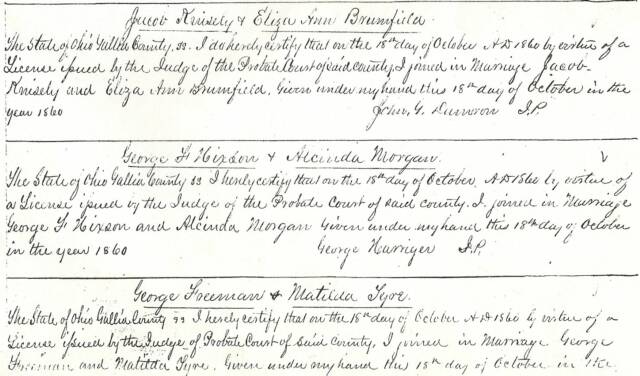 Jacob Knisely & Eliza Ann Brumfield.
The State of Ohio Gallia County, ss. I do hereby certify that on the 18th day of October A.D 1860 by virtue of a
License issued by the Judge of the Probate Court of said county, I joined in Marriage Jacob
Knisely and Eliza Ann Brumfield. Given under my hand this 18th day of October in the
year 1860 John G. J.P.
George F Hixson & Alcinda Morgan.
The State of Ohio Gallia County ss I hereby certify that on the 18th day of October A.D 1860 by virtue of
a License issued by the Judge of the Probate Court of said county. I joined in Marriage
George F Hixson and Alcinda Morgan Given under my hand this 18th day of October
in the year 1860 George Harriger J.P.
George Freeman & Matilda Tyre.
The State of Ohio Gallia County ss I hereby certify that on the 18th day of October A.D 1860 by virtue of a
License issued by the Judge of Probate Court of said County, I joined in Marriage George
Freeman and Matilda Tyre. Given under my hand this 18th day of October in the